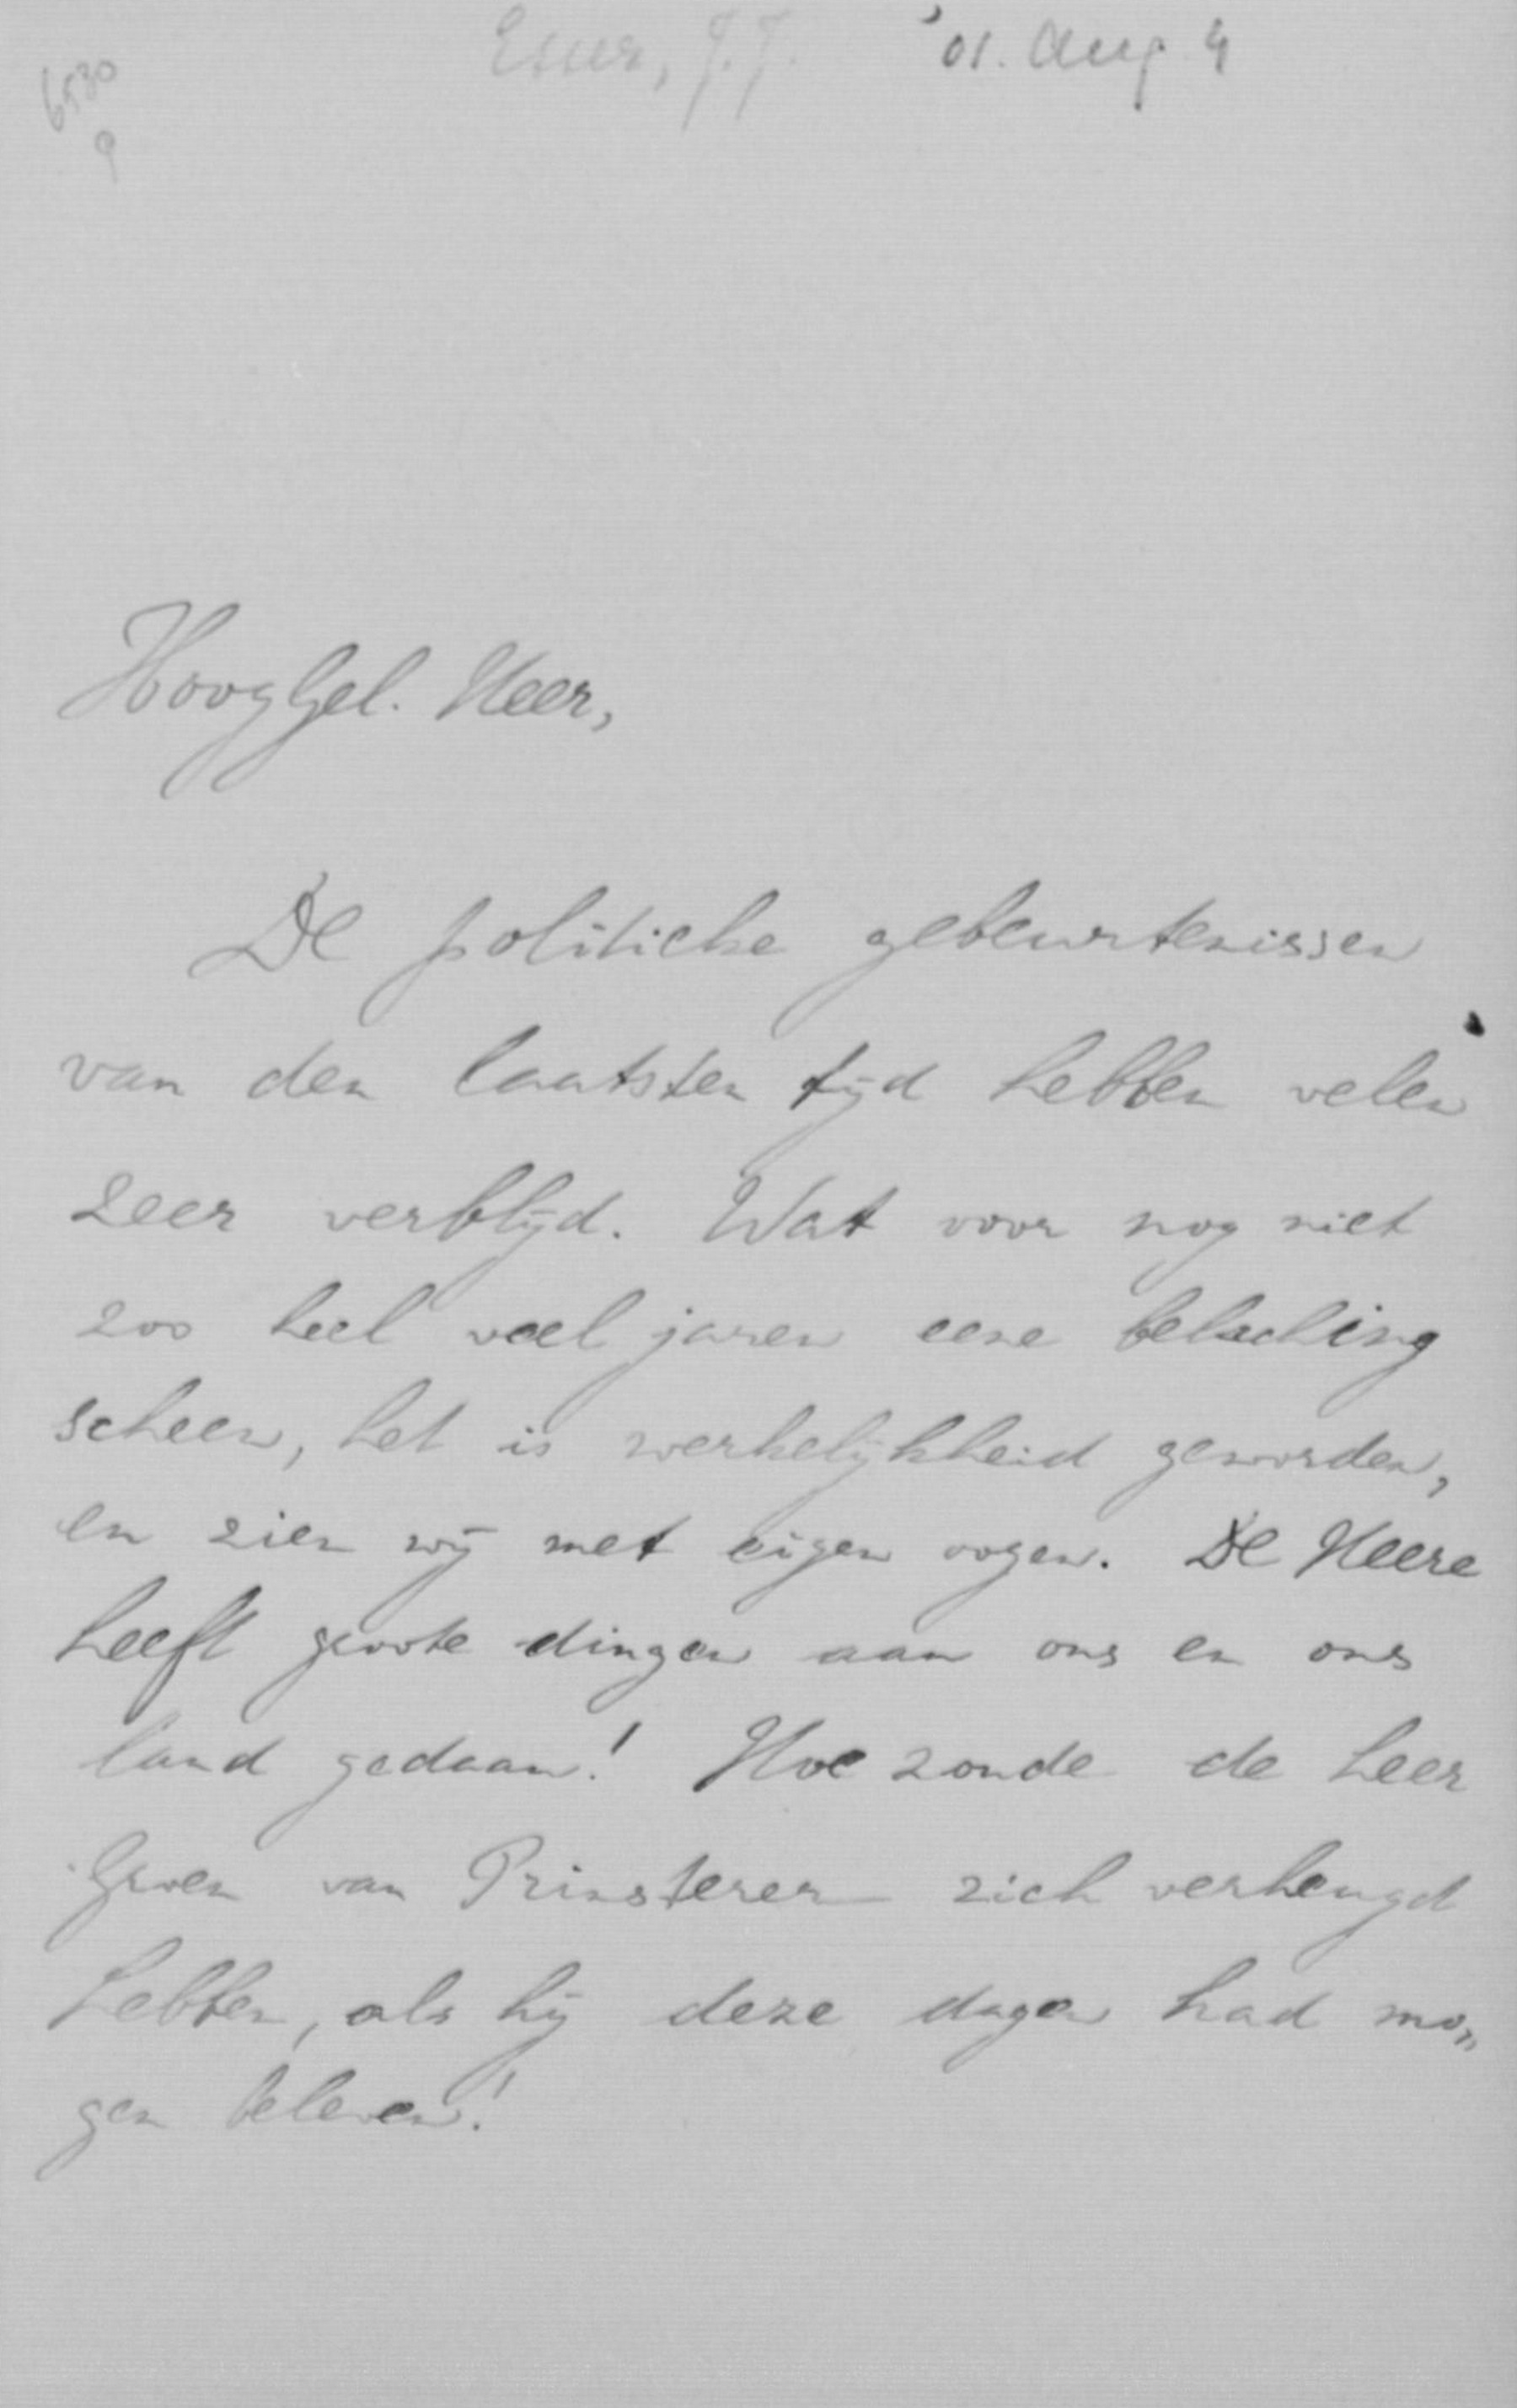 Esser, J.J. '01. Aug. 4
6530
9
HoogGel. Heer,
De politieke gebeurtenissen
van den laatsten tijd hebben velen
zeer verblijd. Wat voor nog niet
zoo heel veel jaren eene belaching
scheen, het is werkelijkheid geworden,
en zien wij met eigen oogen. De Heere
heeft groote dingen aan ons en ons
land gedaan! Hoe zoude de heer
Groen van Prinsterer zich verheugd
hebben, als hij deze dagen had mo„
gen beleven!